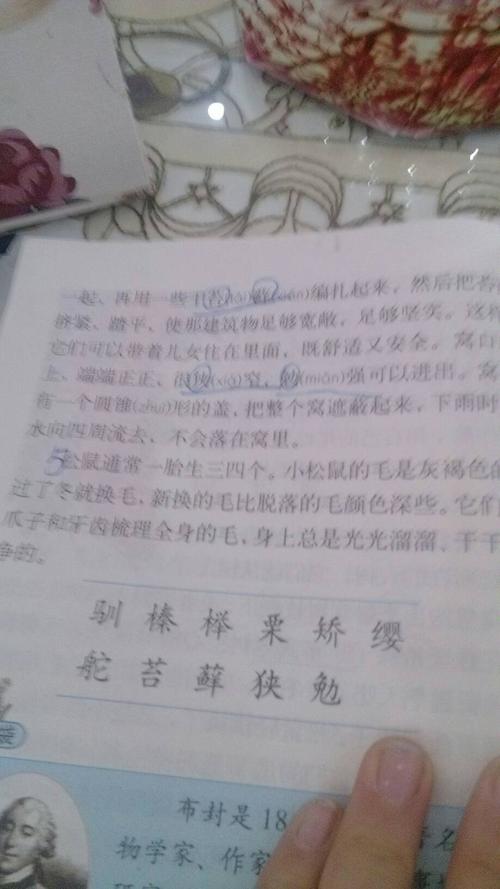 一起、再用一些干苔(tái)藓(xiǎn)编扎起来，然后把苔
挤紧、踏平、使那建筑物足够宽敞，足够坚实。这样
它们可以带着儿女住在里面，既舒适又安全。窝口
上、端端正正、很狭(xiá)窄，勉(miǎn)强可以进出。窝
有一个圆锥(zhuī)形的盖，把整个窝遮蔽起来，下雨时
水向四周流去、不会落在窝里。
5松鼠通常一胎生三四个。小松鼠的毛是灰褐色的
过了冬就换毛，新换的毛比脱落的毛颜色深些。它们
爪子和牙齿梳理全身的毛，身上总是光光溜溜、干干
净的。
驯 榛 榉 栗 矫 缨
舵 苔 藓 狭 勉
布封是18
物学家、作家